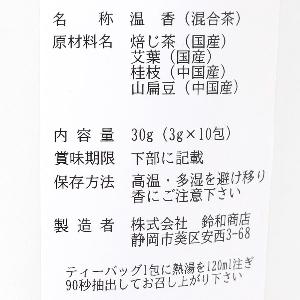 名　称　温　香（混合茶）
原材料名　焙じ茶（国産）
艾葉（国産）
桂枝（中国産）
山扁豆（中国産）
内 容 量　30g（3g×10包）
賞味期限　下部に記載
保存方法　高温・多湿を避け移り
香にご注意下さい
製 造 者　株式会社　鈴和商店
静岡市葵区安西3-68
ティーバッグ1包に熱湯を120ml注ぎ
90秒抽出してお召し上がり下さい